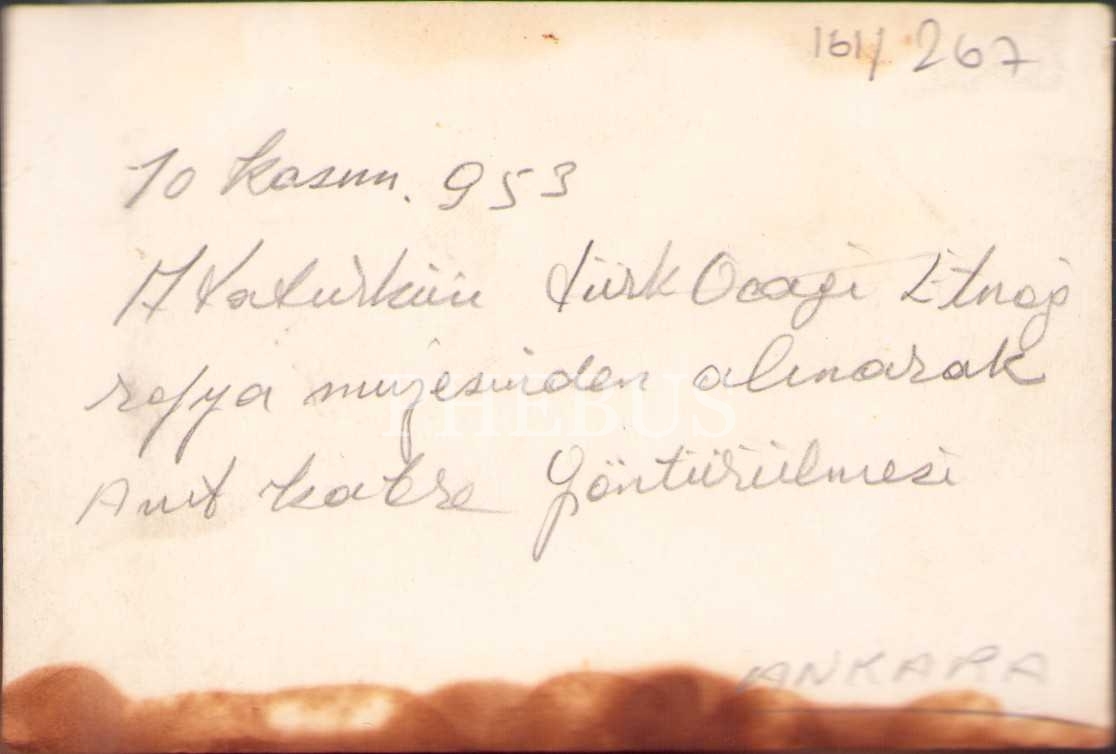 161/ 267
10 kasım. 953
Atatürkün türk Ocagi Etnog
rafya müzesinden alınarak
Anıt kabre göntürülmesi
PHEBUS
ANKARA